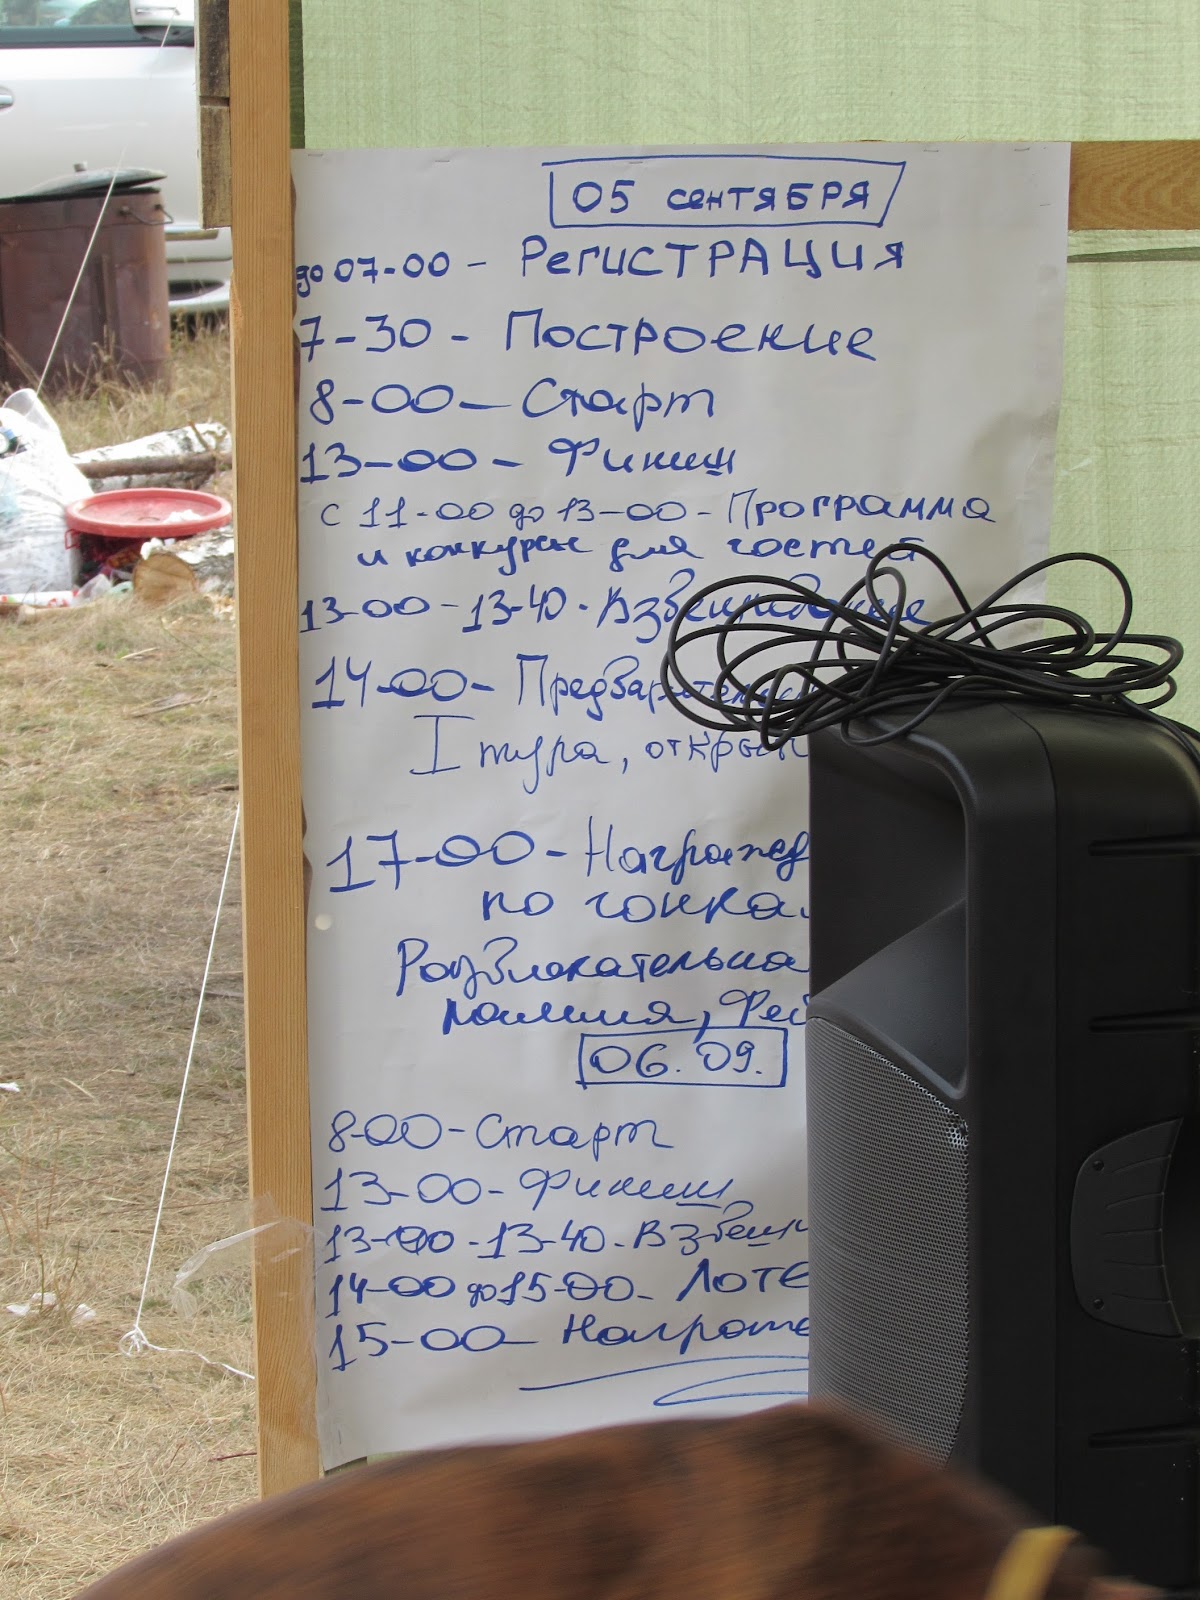 05 сентября
до 07-00 - Регистрация
7-30 - Построение
8-00 - Старт
13-00 - Финиш
с 11-00 до 13-00 - Программа
и конкурсы для гостей
13-00 - 13-40 - Взвешивание
14-00 - Предварительн
I тура, открыт
17-00 - Награжд
по гонка
Развлекательна
Фей
06.09.
8-00 - Старт
13-00 - Финиш
13-00 - 13-40 - Взвеши
14-00 до 15-00 - Лоте
15-00 - Награж